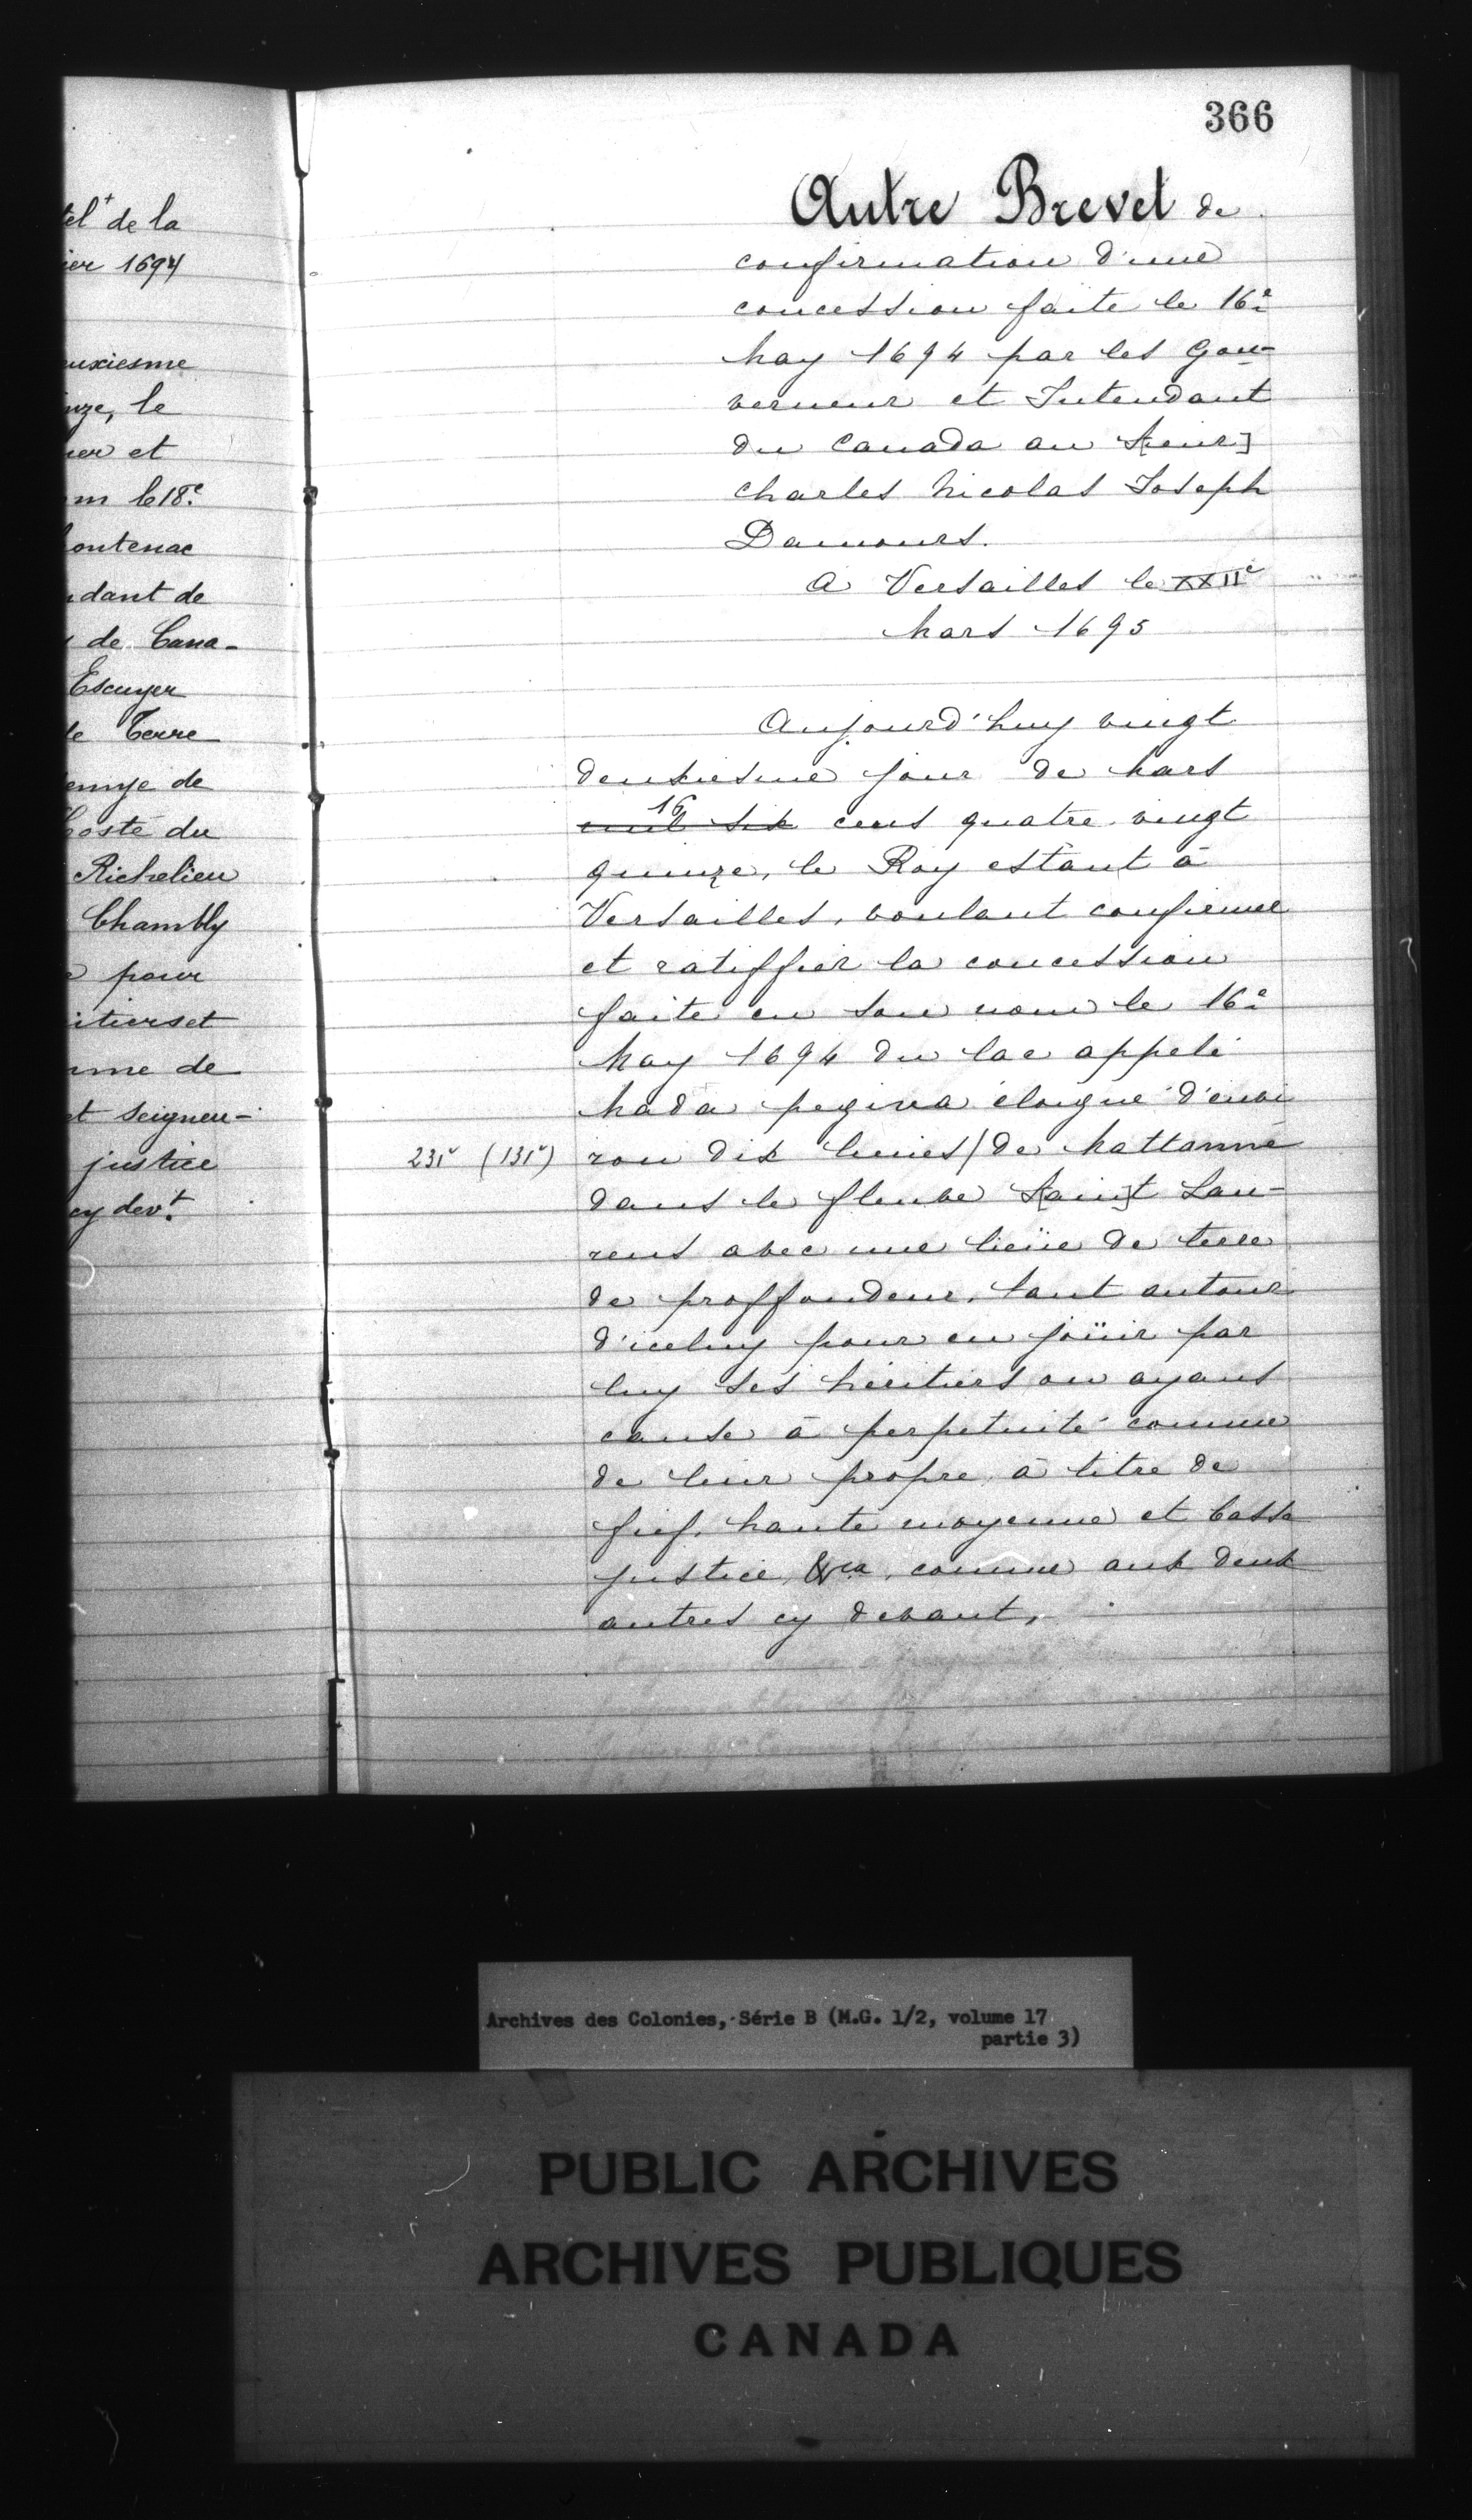 tel^t de la
ier 1694
uxiesme
nze, le
ier et
m le 18e
ontenac
dant de
de Cana-
Escuyer
le Terre
emye de
Costé du
Richelieu
Chambly
pour
itiers et
me de
et Seigneu-
justice
cy dev^t.
366
Autre Brevet de
confirmation d'une
concession faite le 16e
May 1694 par les Gou-
verneur et Intendant
du Canada au S[ieur]
Charles Nicolas Joseph
Damours.
A Versailles le XXIIe
Mars 1695
Aujourd'huy vingt
deuxiesme jour de Mars
mil six 16 cens quatre vingt
quinze, le Roy estant à
Versailles, voulant confirmer
et ratiffier la concession
faite en son nom le 16e
May 1694 du lac appelé
Mada pegina éloigné d'envi
231v (131v) ron dix lieües/de Mattanne
dans le fleuve S[ain]t Lau-
rens avec une lieüe de terre
de proffondeur, tant autour
d'iceluy pour en joüir par
luy ses héritiers ou ayans
cause à perpetuité comme
de leur propre à titre de
fief, haute moyenne et basse
justice, &ca, comme aux deux
autres cy devant,
Archives des Colonies, Série B (M.G. 1/2, volume 17
partie 3)
PUBLIC ARCHIVES
ARCHIVES PUBLIQUES
CANADA